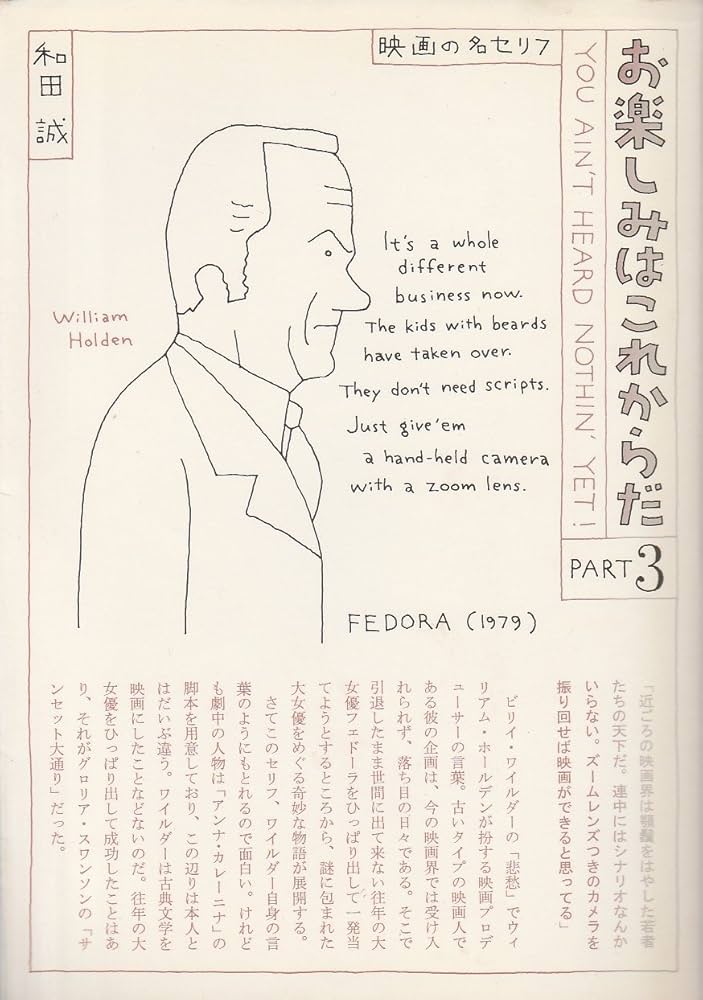 お楽しみはこれからだ
YOU AIN'T HEARD NOTHIN' YET!
PART 3
映画の名セリフ
和田 誠
William
Holden
It's a whole
different
business now.
The kids with beards
have taken over.
They don't need scripts.
Just give 'em
a hand-held camera
with a zoom lens.
FEDORA (1979)
「近ごろの映画界は顎鬚をはやした若者
たちの天下だ。連中にはシナリオなんか
いらない。ズームレンズつきのカメラを
振り回せば映画ができると思ってる」
ビリイ・ワイルダーの「悲愁」でウィ
リアム・ホールデンが扮する映画プロデ
ューサーの言葉。古いタイプの映画人で
ある彼の企画は、今の映画界では受け入
れられず、落ち目の日々である。そこで
引退したまま世間に出て来ない往年の大
女優フェドーラをひっぱり出して一発当
てようとするところから、謎に包まれた
大女優をめぐる奇妙な物語が展開する。
さてこのセリフ、ワイルダー自身の言
葉のようにもとれるので面白い。けれど
も劇中の人物は「アンナ・カレーニナ」の
脚本を用意しており、この辺りは本人と
はだいぶ違う。ワイルダーは古典文学を
映画にしたことなどないのだ。往年の大
女優をひっぱり出して成功したことはあ
り、それがグロリア・スワンソンの「サ
ンセット大通り」だった。